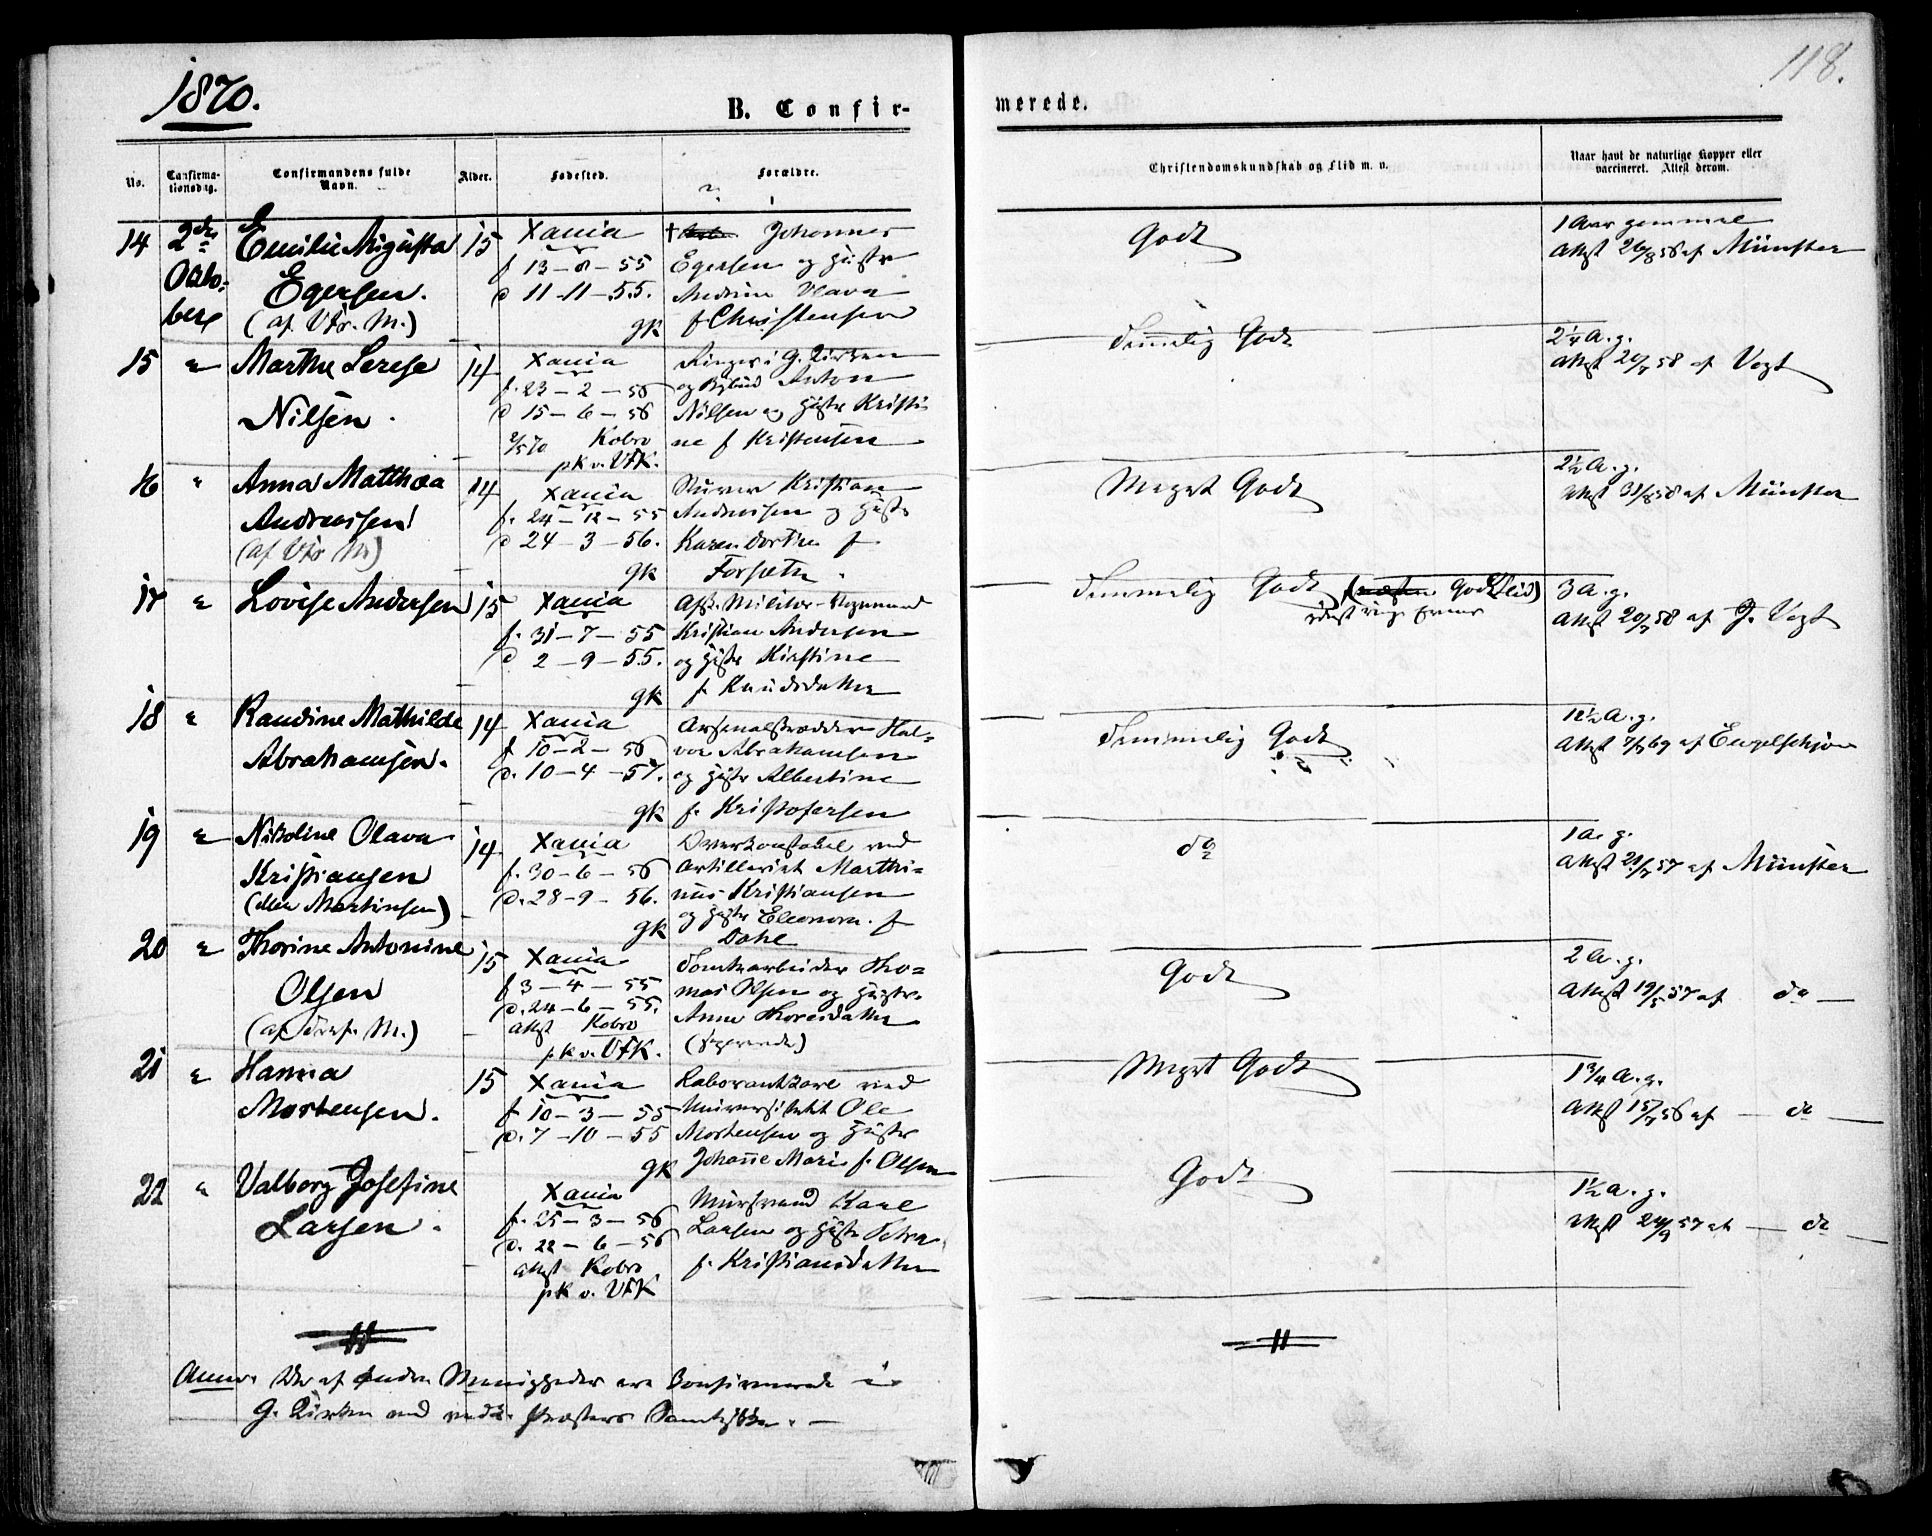 1870.
118.
B. Confir-
merede.
No.
Confirma-
tionsdag.
Confirmandens fulde
Navn.
Alder.
Fødested.
Forældre.
Christendomskundskab og Flid m. v.
Naar havt de naturlige Kopper eller
vaccineret. Attest derom.
14 2den Octo-
ber
Emilie Augusta
Egersen.
(af Vfr. M.)
15
Xania
f 13-8-55
d 11-11-55.
gk
† Johannes
Egersen og Hustr
Andrine Olava
f Christensen
Godt
1 Aar gammel
Attest 26/8 56 af Münster
15 "
Marthe Serese
Nilsen.
14
Xania
f. 23-2-56
d 15-6-56
Kobro
pk v. VFK.
Ringer i G. Kirken
og Anton
Nilsen og Hustr Kristi-
ne f Kristensen
Temmelig Godt
2¼ A. g.
Attest 20/7 58 af Vogt
16 "
Anna Matthea
Andreasen
(af Vfr M)
14
Xania
f. 24-12-55
d 24-3-56.
gk
Murer Kristian
Andreasen og Hustr
Karen Dorthea f
Forseth.
Meget Godt
2½ A. g.
Attest 31/8 58 af Münster
17 "
Lovise Andersen
15
Xania
f. 31-7-55
d 2-9-55.
gk
Afsk. Militær-Vognmand
Kristian Andersen
og Hustr Kirstine
f. Knudsdatter
Temmelig Godt (næsten Godt Flid)
ringe Evner
3 A. g.
Attest 20/7 58 af J. Vogt
18 "
Randine Mathilde
Abrahamsen.
14
Xania
f 10-2-56
d. 10-4-57.
gk
Arsenalskrædder Hal-
vor Abrahamsen
og Hustr Albertine
f. Kristofersen
Temmelig Godt
12½ A. g.
Attest 7/7 69 af Engelschjøn
19 "
Nikoline Olava
Kristiansen
(eller Martinsen)
14
Xania
f. 30-6-56
d. 28-9-56.
gk
Overkonstabel ved
Artilleriet Marthi-
nus Kristiansen
og Hustr Eleonora f
Dahl
do
1 A. g.
Attest 21/7 57 af Münster
20 "
Thorine Antonine
Olsen
(af Tref. M.)
15
Xania
f 3-4-55
d. 24-6-55.
attest Kobro
pk v. VFK.
Tomtearbeider Tho-
mas Olsen og Hustr.
Anne Thoresdatter
Godt
2 A. g.
Attest 19/5 57 af do
21 "
Hanna
Mortensen.
15
Xania
f 10-3-55
d. 7-10-55
gk
Laborantkarl ved
Universitetet Ole
Mortensen og Hustr
Johanne Marie f. Olsen
Meget Godt
1¾ A. g.
Attest 15/7 56 af do
22 "
Valborg Josefine
Larsen.
Xania
f. 25-3-56
d. 22-6-56
attest Kobro
pk v. VFK
Mursvend Karl
Larsen og Hustr Petra
f. Kristiansdatter
Godt
1½ A. g.
Attest 24/9 57 af do
Anm. De af andre Menigheder ere Confirmerede i
G. Kirken med vedk. Præsters Samtykke.